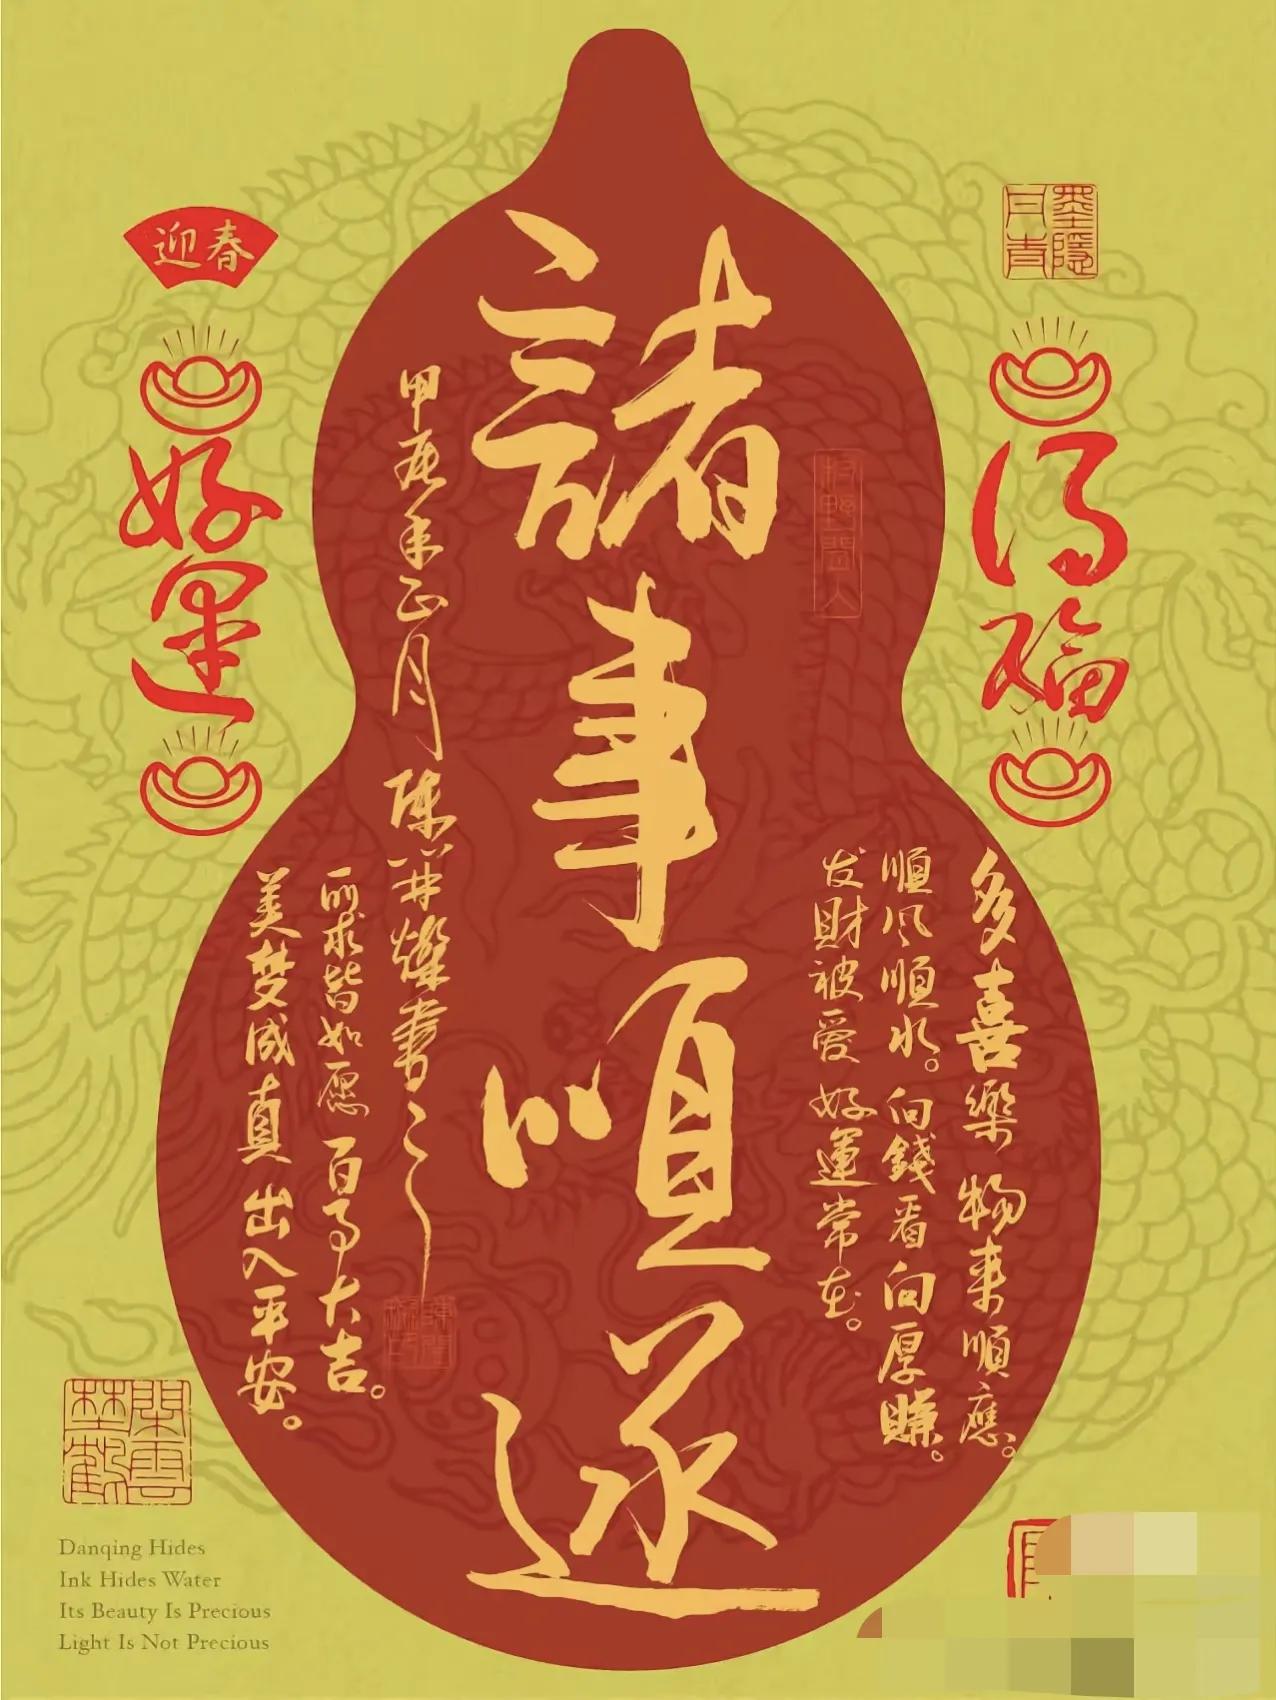 諸事順遂
多喜樂 物来順應。
順风順水。向錢看向厚賺。
发財被爱 好運常在。
甲辰年正月陳



書
所求皆如愿 百事大吉。
美梦成真 出入平安。
迎春
好運
得福
墨隐丹青
閑雲埜鶴
Danqing Hides
Ink Hides Water
Its Beauty Is Precious
Light Is Not Precious